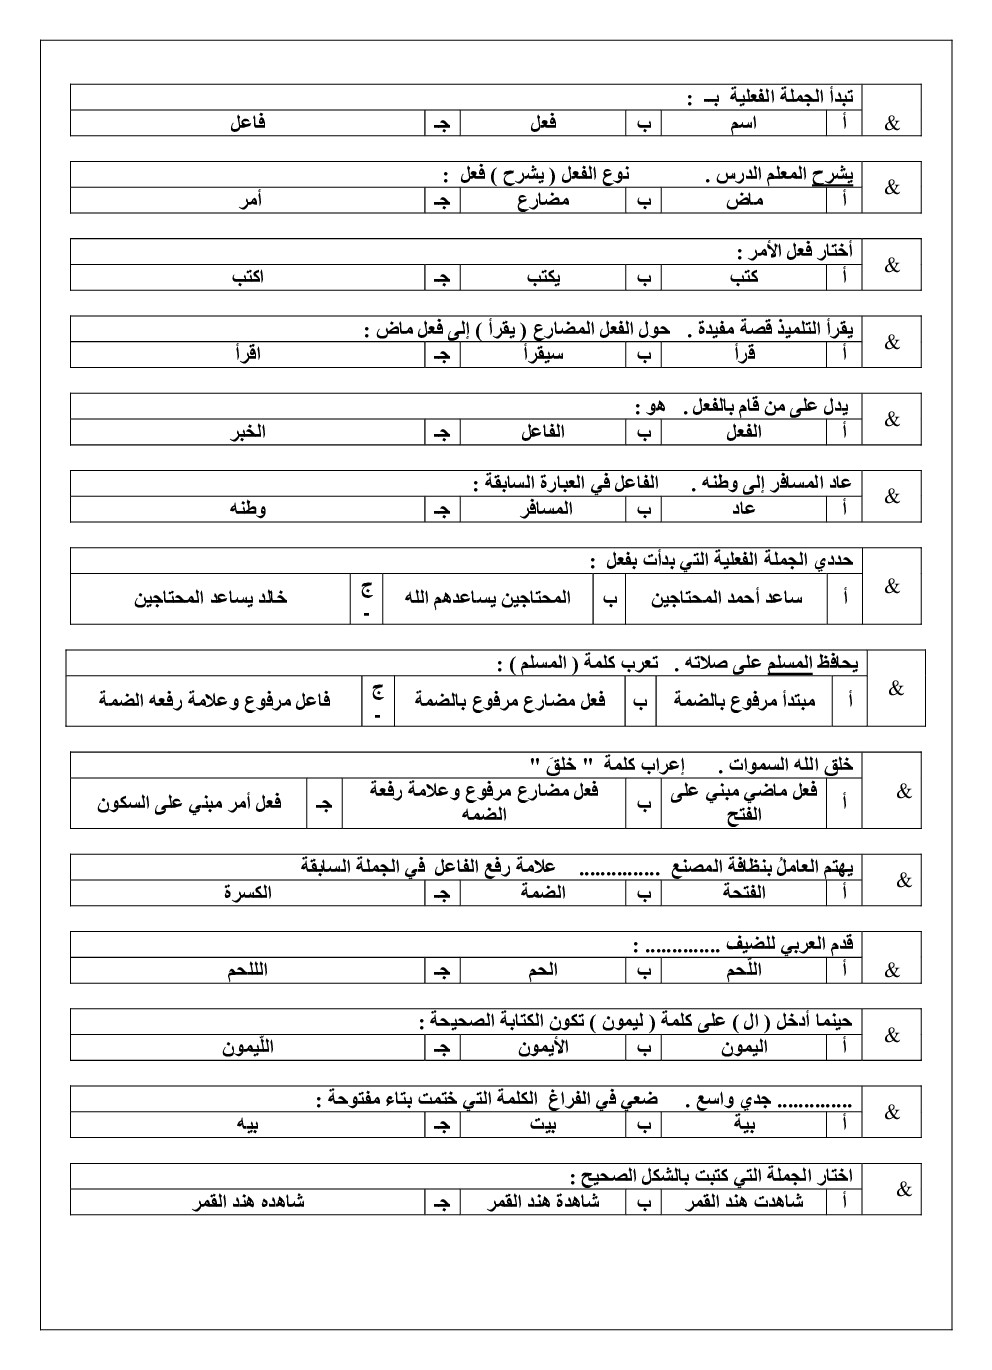 تبدأ الجملة الفعلية بـ :
& أ اسم ب فعل جـ فاعل
يشرح المعلم الدرس . نوع الفعل ( يشرح ) فعل :
& أ ماض ب مضارع جـ أمر
أختار فعل الأمر :
& أ كتب ب يكتب جـ اكتب
يقرأ التلميذ قصة مفيدة . حول الفعل المضارع ( يقرأ ) إلى فعل ماض :
& أ قرأ ب سيقرأ جـ اقرأ
يدل على من قام بالفعل . هو :
& أ الفعل ب الفاعل جـ الخبر
عاد المسافر إلى وطنه . الفاعل في العبارة السابقة :
& أ عاد ب المسافر جـ وطنه
حددي الجملة الفعلية التي بدأت بفعل :
& أ ساعد أحمد المحتاجين ب المحتاجين يساعدهم الله ج- خالد يساعد المحتاجين
يحافظ المسلم على صلاته . تعرب كلمة ( المسلم ) :
& أ مبتدأ مرفوع بالضمة ب فعل مضارع مرفوع بالضمة ج- فاعل مرفوع وعلامة رفعه الضمة
خلق الله السموات . إعراب كلمة " خلقَ "
& أ فعل ماضي مبني على الفتح ب فعل مضارع مرفوع وعلامة رفعة الضمه جـ فعل أمر مبني على السكون
يهتم العاملُ بنظافة المصنع .............. علامة رفع الفاعل في الجملة السابقة
& أ الفتحة ب الضمة جـ الكسرة
قدم العربي للضيف ............. :
& أ اللّحم ب الحم جـ الللحم
حينما أدخل ( ال ) على كلمة ( ليمون ) تكون الكتابة الصحيحة :
& أ اليمون ب الأيمون جـ اللّيمون
............. جدي واسع . ضعي في الفراغ الكلمة التي ختمت بتاء مفتوحة :
& أ بية ب بيت جـ بيه
اختار الجملة التي كتبت بالشكل الصحيح :
& أ شاهدت هند القمر ب شاهدة هند القمر جـ شاهده هند القمر